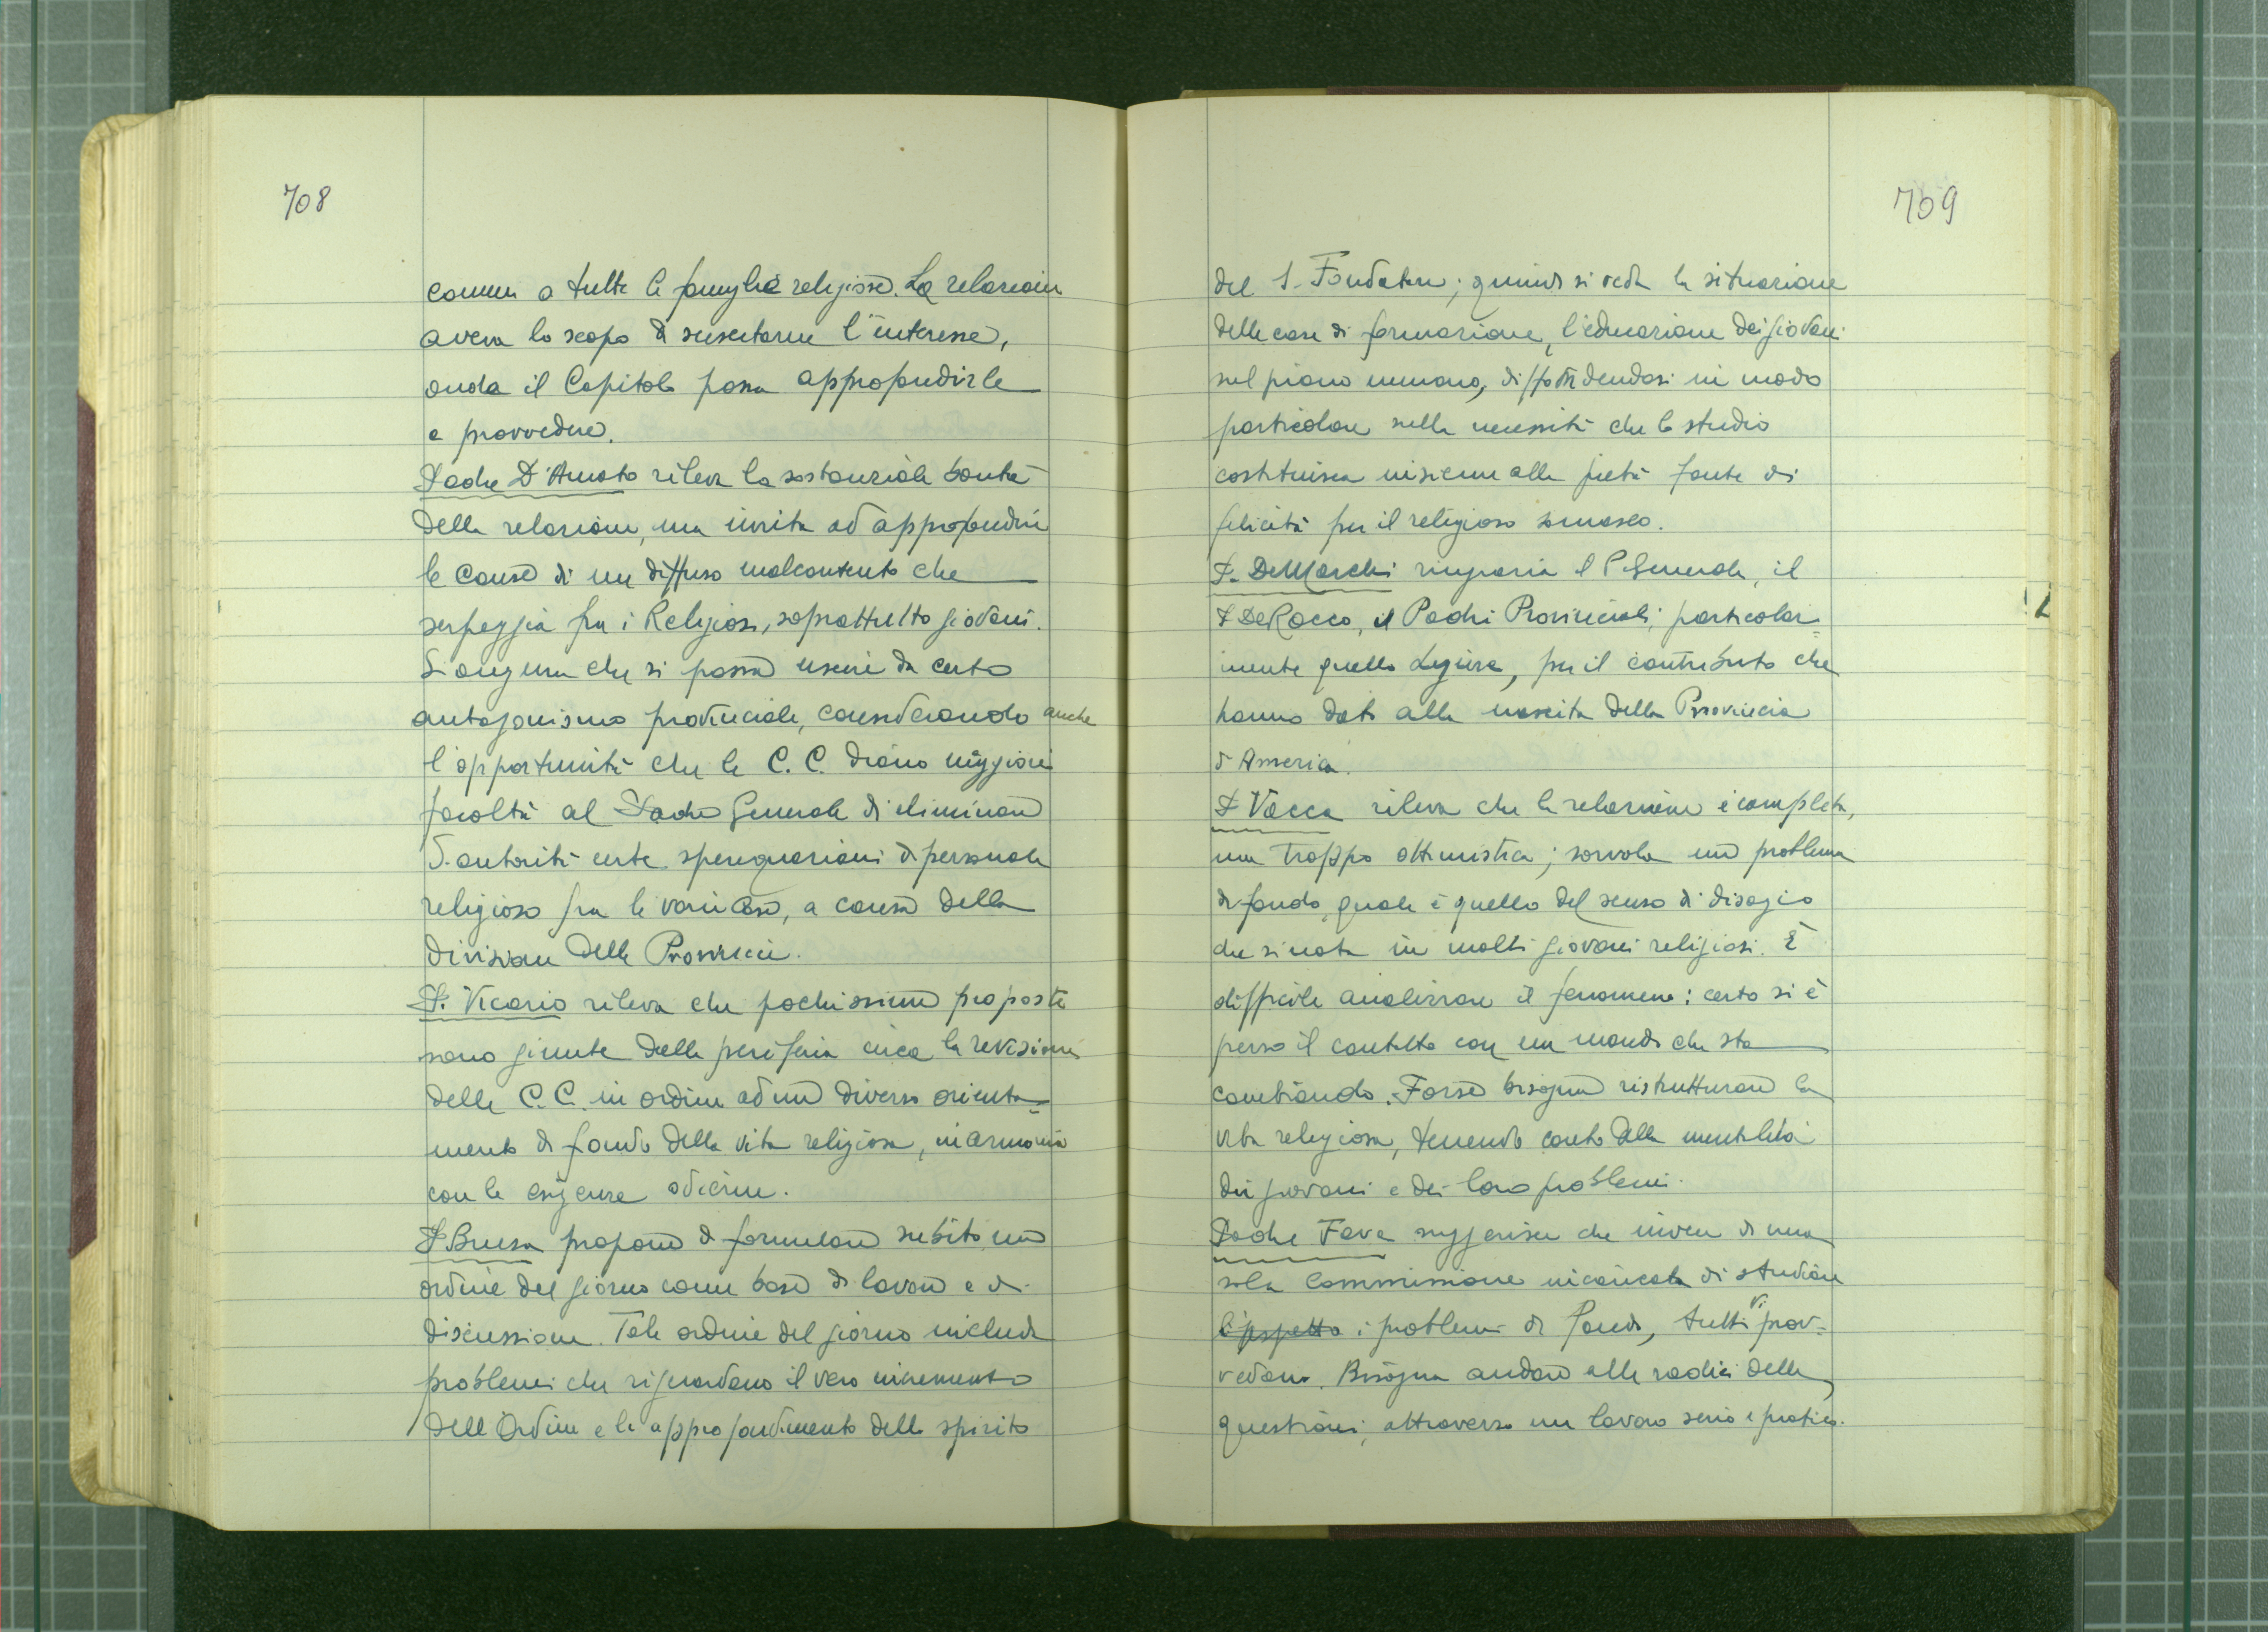 708
comuni a tutte le famiglie religiose. La relazione
aveva lo scopo di suscitarne l'interesse,
onde il Capitolo possa approfondirle
e provvedere.
Padre D'Amato rileva la sostanziale bontà
della relazione, ma invita ad approfondire
le cause di un diffuso malcontento che
serpeggia fra i Religiosi, soprattutto giovani.
Si augura che si possa uscire da certo
antagonismo provinciale, considerando anche
l'opportunità che le C.C. diano maggiori
facoltà al Padre Generale di eliminare
d'autorità certe sperequazioni di personale
religioso fra le varie Case, a causa della
divisione delle Provincie.
P. Vicario rileva che pochissime proposte
sono giunte dalla periferia circa la revisione
delle C.C. in ordine ad un diverso orienta=
mento di fondo della vita religiosa, in armonia
con le esigenze odierne.
P. Brusa propone di formulare subito un
ordine del giorno come base di lavoro e di
discussione. Tale ordine del giorno includa
problemi che riguardano il vero incremento
dell'Ordine e lo approfondimento dello spirito
709
del S. Fondatore; quindi si veda la situazione
delle case di formazione, l'educazione dei giovani
sul piano umano, diffondendosi in modo
particolare sulla necessità che lo studio
costituisca insieme alla pietà fonte di
felicità per il religioso somasco.
P. De Marchi ringrazia il P. Generale, il
P. De Rocco, i Padri Provinciali, particolar=
mente quello Ligure, per il contributo che
hanno dato alla nascita della Provincia
d'America.
P. Vacca rileva che la relazione è completa,
ma troppo ottimistica; sorvola un problema
di fondo, quale è quello del senso di disagio
che si nota in molti giovani religiosi. È
difficile analizzare il fenomeno: certo si è
perso il contatto con un mondo che sta
cambiando. Forse bisogna ristrutturare la
vita religiosa, tenendo conto della mentalità
dei giovani e dei loro problemi.
Padre Fava suggerisce che invece di una
sola Commissione incaricata di studiare
i problemi di fondo, tutti vi prov=
vedano. Bisogna andare alle radici delle
questioni, attraverso un lavoro serio e pratico.